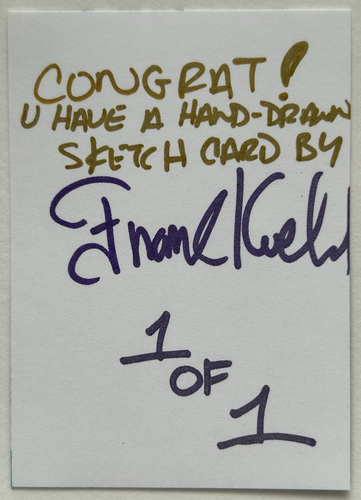 CONGRAT!
U HAVE A HAND-DRAWN
SKETCH CARD BY
Frank
1
OF
1